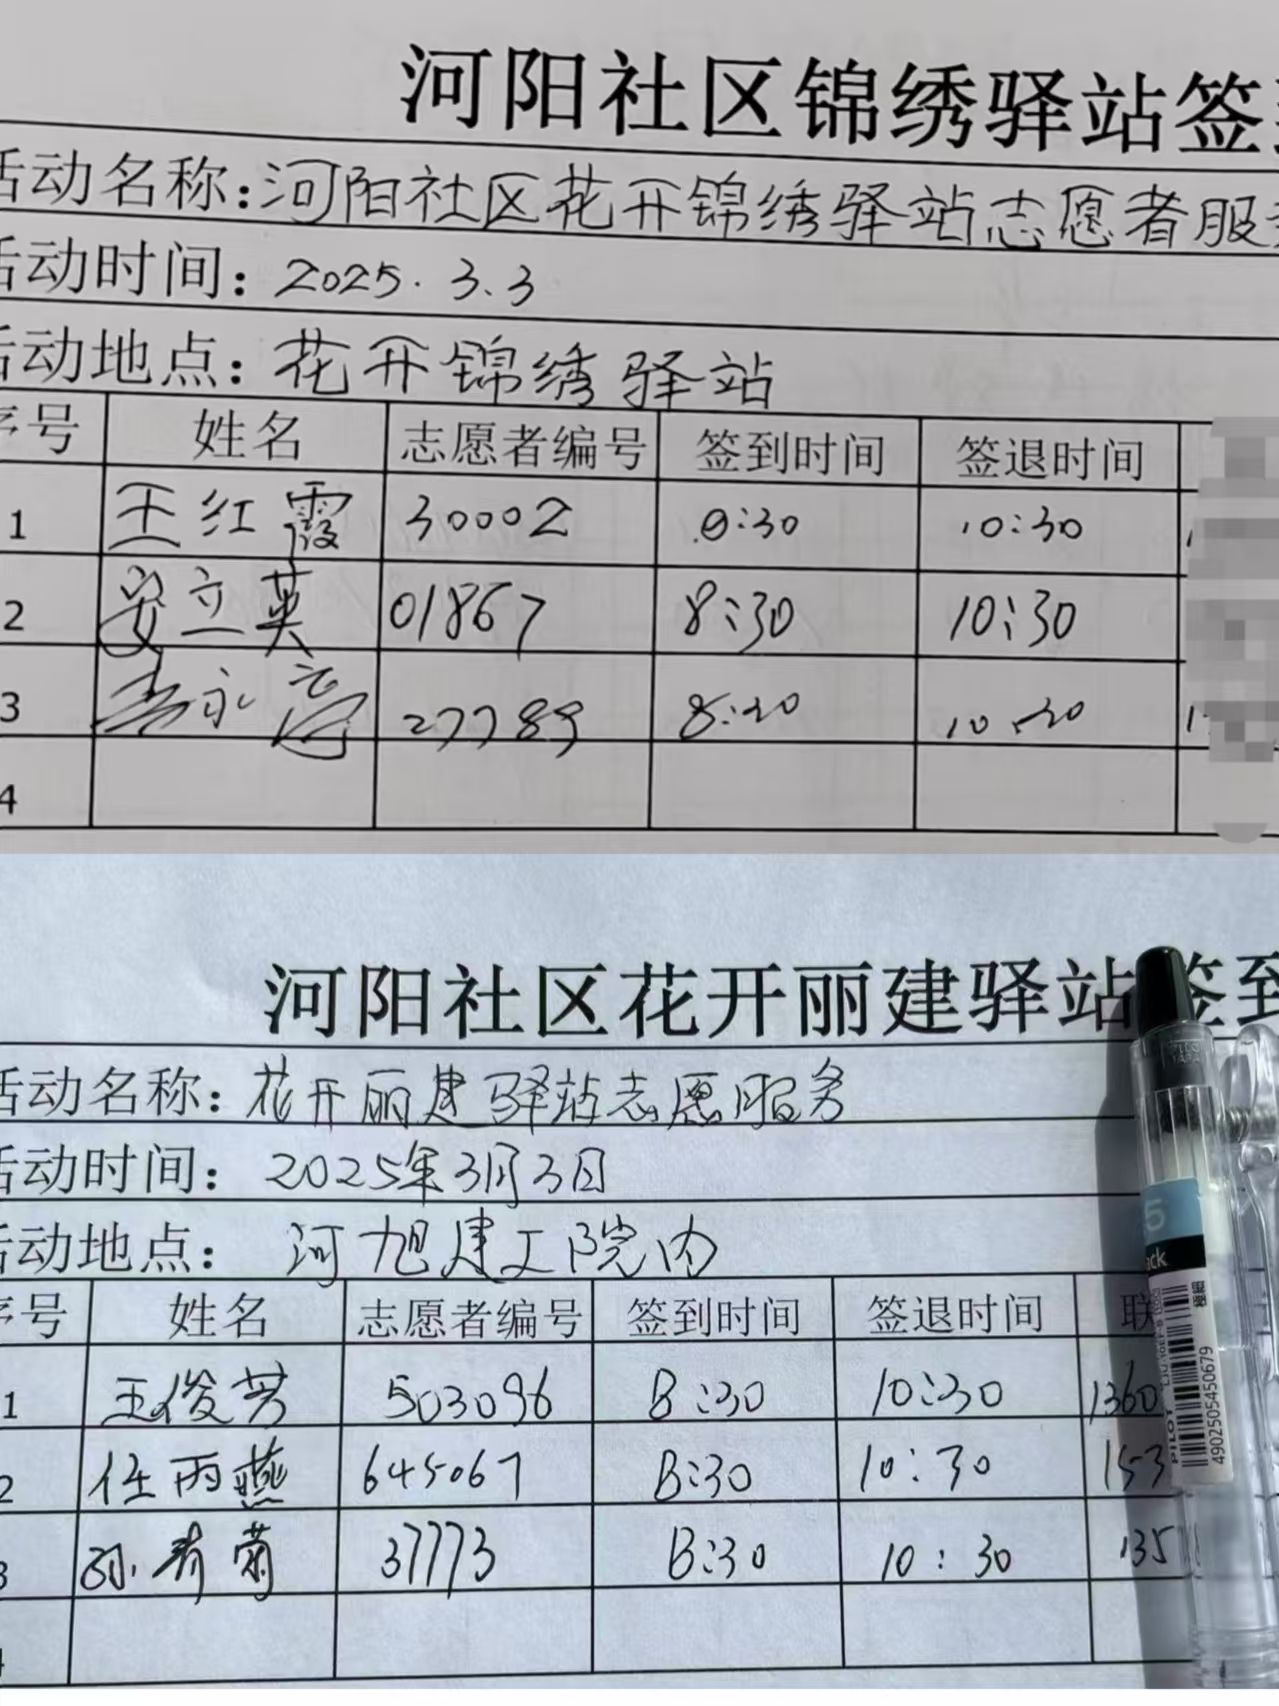 河阳社区锦绣驿站签
活动名称:河阳社区花开锦绣驿站志愿者服
活动时间:2025.3.3
活动地点:花开锦绣驿站
序号 姓名 志愿者编号 签到时间 签退时间
1 王红霞 30002 8:30 10:30
2 安立英 01867 8:30 10:30
3 27789 8:30 10:30
4
河阳社区花开丽建驿站签到
活动名称:花开丽建驿站志愿服务
活动时间:2025年3月3日
活动地点:河旭建工院内
序号 姓名 志愿者编号 签到时间 签退时间 联
1 王俊芳 503096 8:30 10:30 1360
2 任丙燕 645067 8:30 10:30 153
3 37773 8:30 10:30 135
4
PILOT
4902505450679